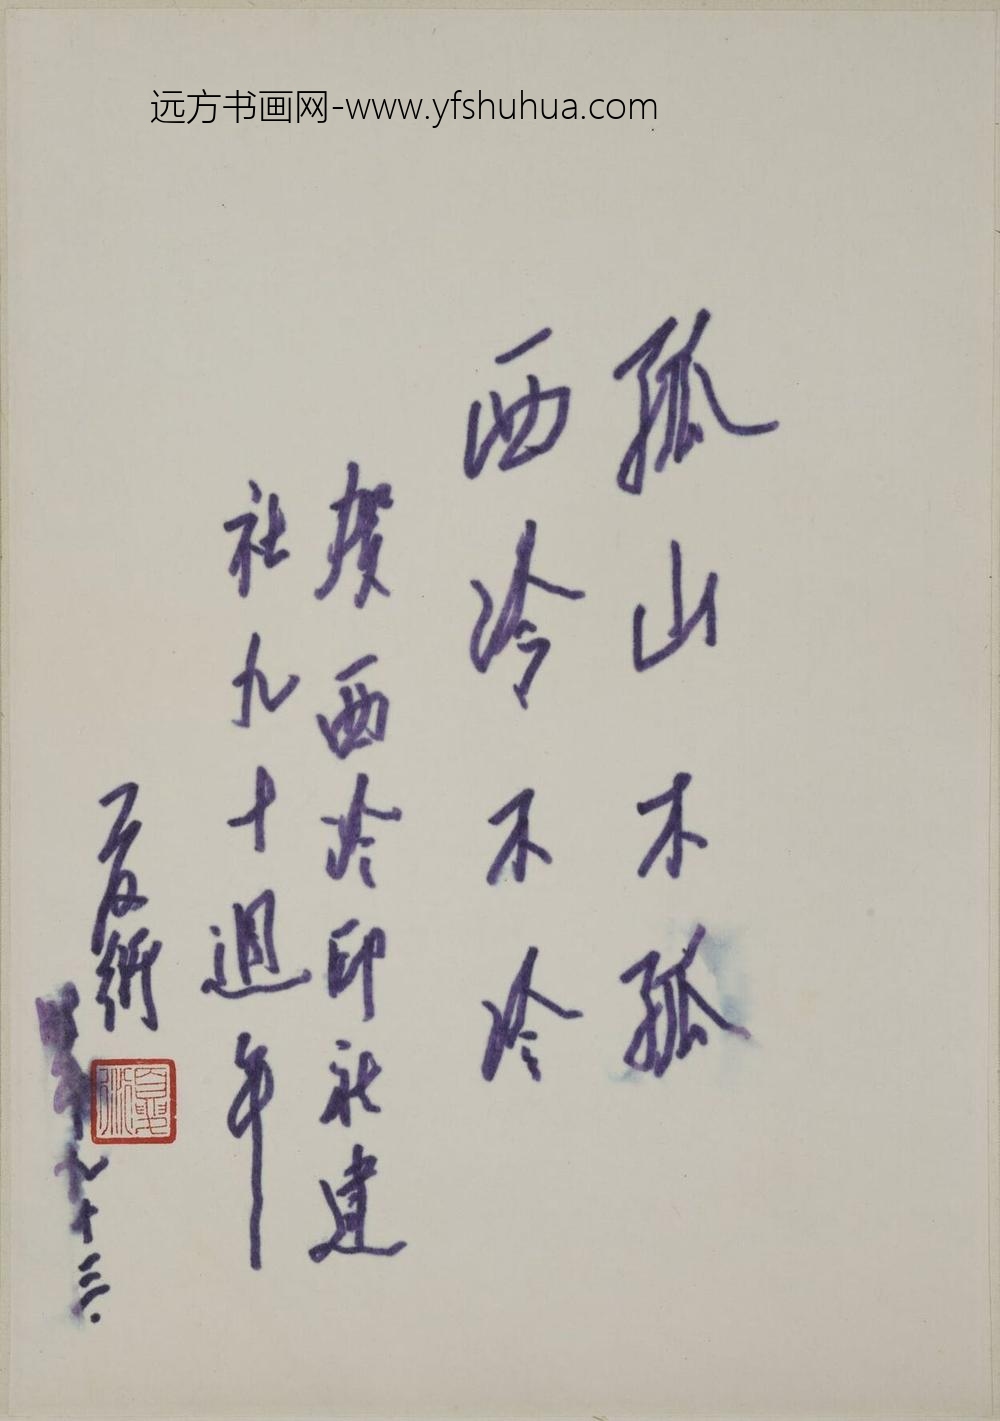 远方书画网-www.yfshuhua.com
孤山不孤
西泠不冷
贺西泠印社建
社九十週年
夏衍
九十三
夏衍